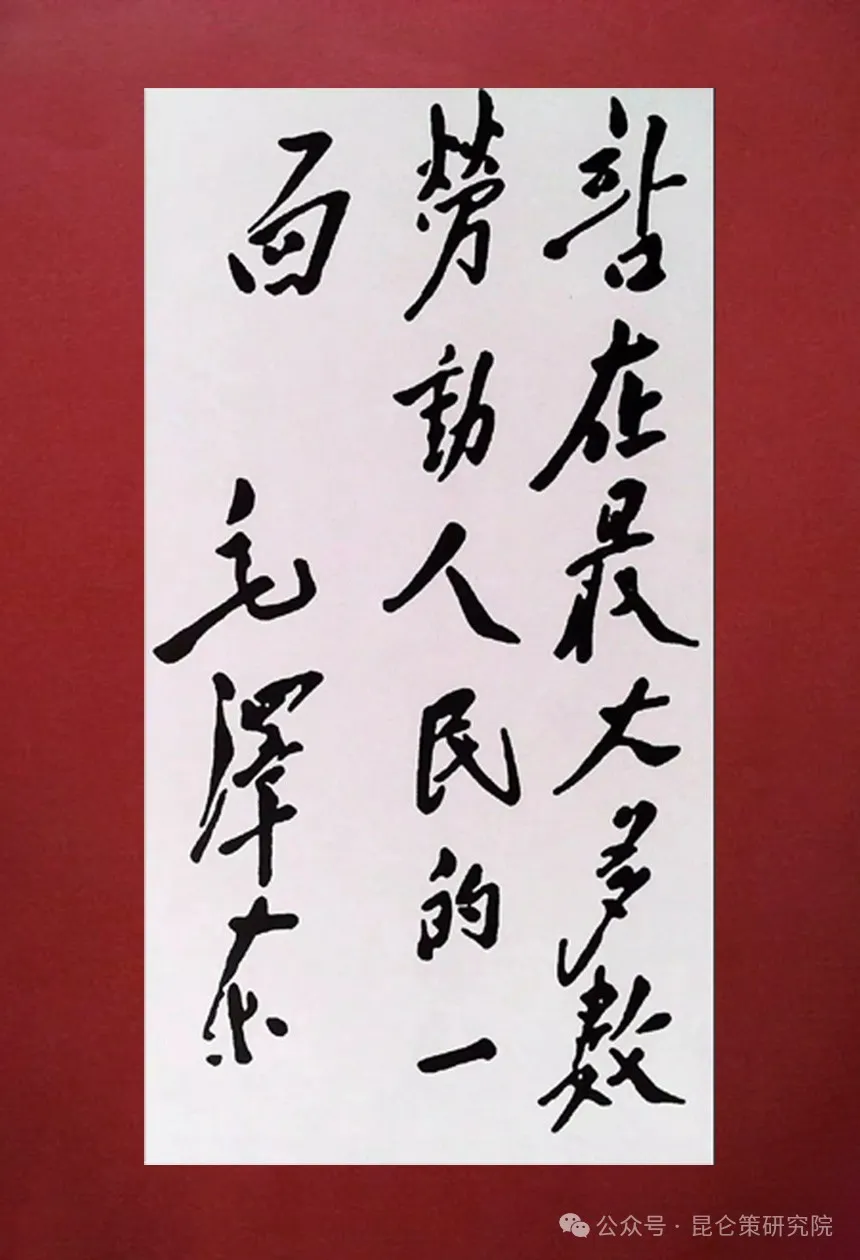 站在最大多數
勞動人民的一
面 毛澤東
公众号 · 昆仑策研究院